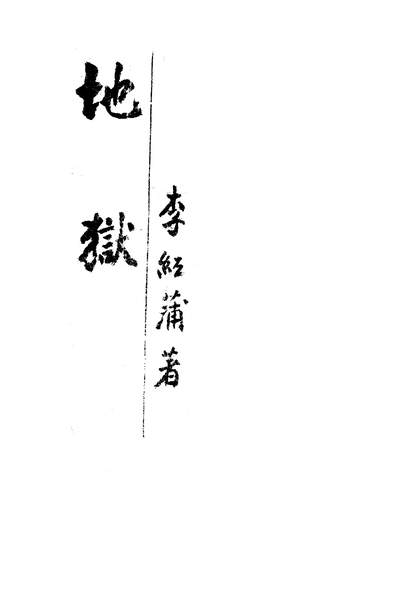 地獄
李紅蒲著